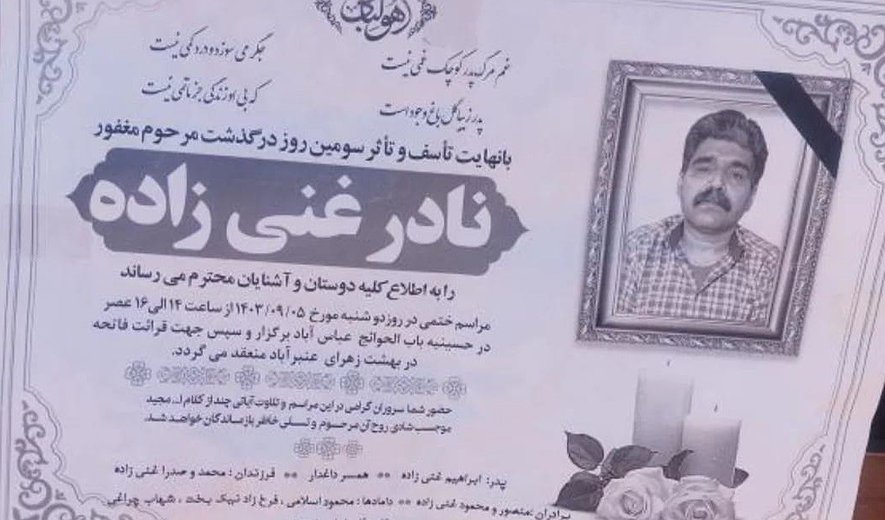 هوالباقی
غم مرگ پدر کوچک غمی نیست
جگر می سوزد و درد کمی نیست
پدر زیبا گل باغ وجود است
که بی او زندگی جز ماتمی نیست
با نهایت تأسف و تأثر سومین روز درگذشت مرحوم مغفور
نادر غنی زاده
را به اطلاع کلیه دوستان و آشنایان محترم می رساند
مراسم ختمی در روز دو شنبه مورخ ۱۴۰۳/۰۹/۰۵ از ساعت ۱۴ الی ۱۶ عصر
در حسینیه باب الحوائج عباس آباد برگزار و سپس جهت قرائت فاتحه
در بهشت زهرای عنبرآباد منعقد می گردد.
حضور شما سروران گرامی در این مراسم و تلاوت آیاتی چند از کلام ا... مجید
موجب شادی روح آن مرحوم و تسلی خاطر بازماندگان خواهد شد.
پدر: ابراهیم غنی زاده ** همسر داغدار ** فرزندان : محمد و صدرا غنی زاده
برادران : منصور و محمود غنی زاده ** دامادها : محمود اسلامی ، فرخ زاد نیک بخت ، شهاب چراغی